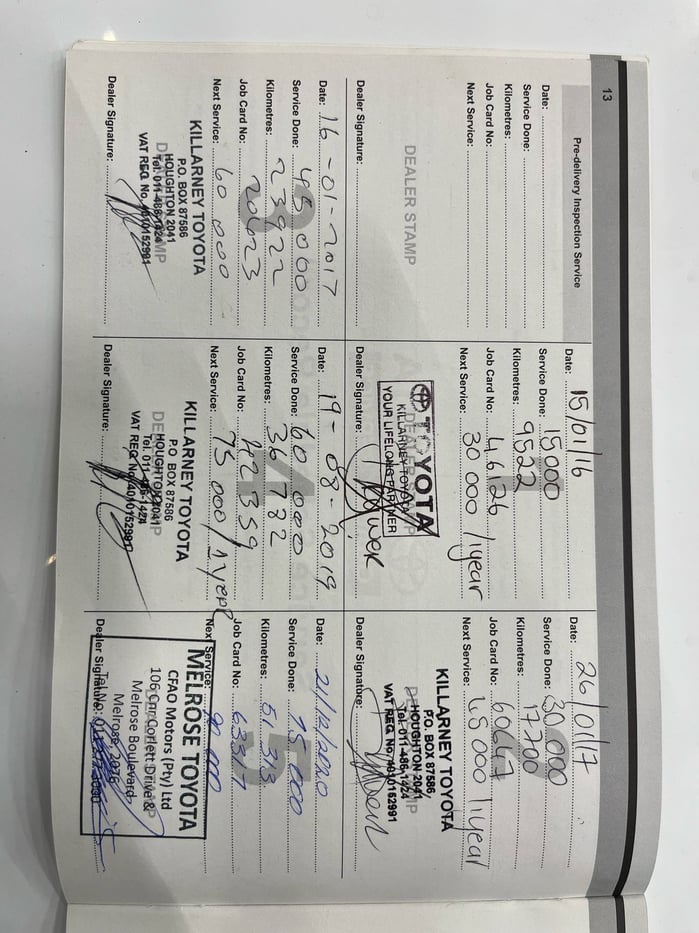 13
Pre-delivery Inspection Service
Date:
Service Done:
Kilometres:
Job Card No:
Next Service:
DEALER STAMP
Dealer Signature:
1
Date: 15/01/16
Service Done: 15000
Kilometres: 9522
Job Card No: 46126
Next Service: 30 000 / 1year
TOYOTA
KILLARNEY TOYOTA
YOUR LIFELONG PARTNER
Dealer Signature:
Date: 26/01/17
Service Done: 30 000
Kilometres: 17700
Job Card No: 60647
Next Service: 45 000 / 1year
KILLARNEY TOYOTA
P.O. BOX 87586
HOUGHTON 2041
Tel. 011-486-1424
VAT REG No. 4010152991
Dealer Signature:
3
Date: 16-01-2017
Service Done: 45 000
Kilometres: 23922
Job Card No: 20623
Next Service: 60 000
KILLARNEY TOYOTA
P.O. BOX 87586
HOUGHTON 2041
Tel. 011-486-1424
VAT REG No. 4010152991
Dealer Signature:
4
Date: 19-08-2019
Service Done: 60 000
Kilometres: 36 782
Job Card No: 42359
Next Service: 75 000 / 1year
KILLARNEY TOYOTA
P.O BOX 87586
HOUGHTON 2041
Tel. 011-486-1424
VAT REG No. 4010152991
Dealer Signature:
5
Date: 21/12/2020
Service Done: 75 000
Kilometres: 51 313
Job Card No:
Next Service: 90 000
MELROSE TOYOTA
CFAO Motors (Pty) Ltd
106 Cnr Corlett Drive &
Melrose Boulevard
Melrose 2076
Tel No:
Dealer Signature: